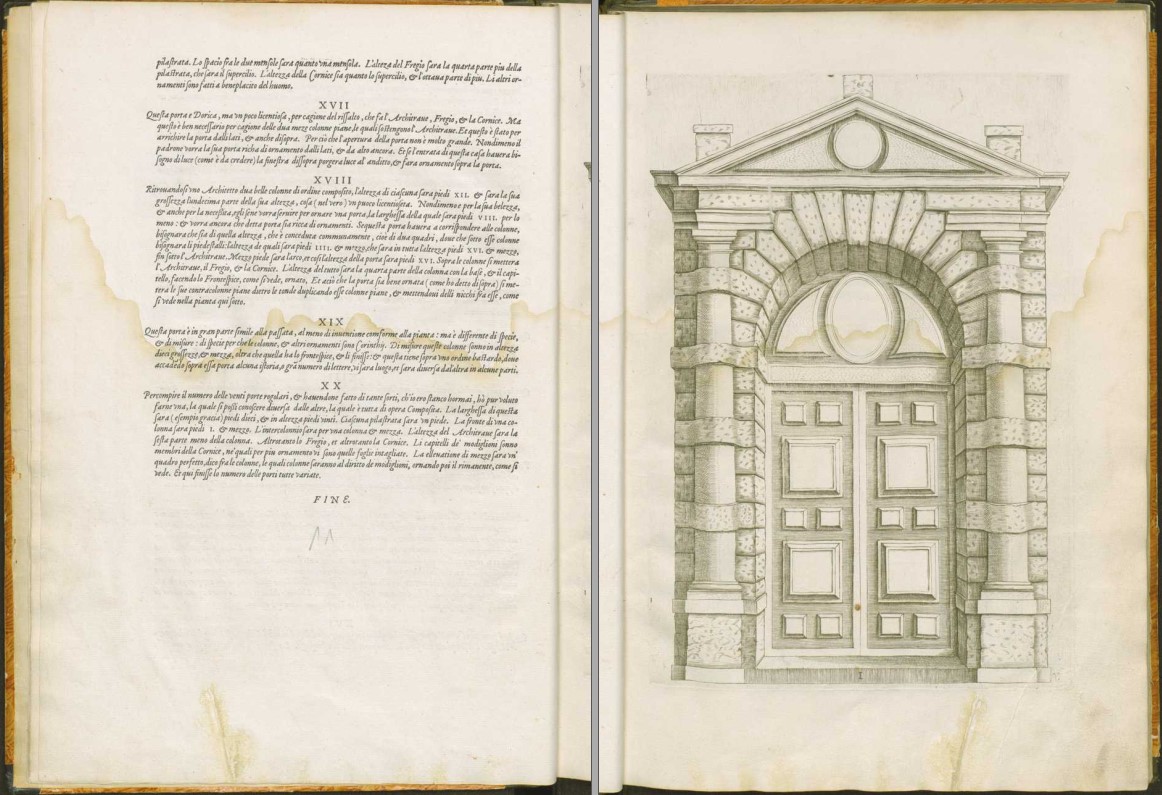 pilastrata. Lo spacio fia le due mensole sara quanto vna mensola. L'alteza del Fregio sara la quarta parte piu della
pilastrata, che sara il supercilio. L'altezza della Cornice sia quanto lo supercilio, & l'ottaua parte di piu. Li altri or-
namenti sono fatti a beneplacito del huomo.
XVII
Questa porta e Dorica, ma vn poco licentiosa, per cagione del rissalto, che fa l'Architraue, Fregio, & la Cornice. Ma
questo è ben necessario per cagione delle dua meze colonne piane, le quali sostengono l'Architraue. Et questo è stato per
arrichire la porta dalli lati, & anche disopra. Per ciò che l'apertura della porta non è molto grande. Nondimeno il
padrone vorra la sua porta richa di ornamento dalli lati, & da alto ancora. Et se l'entrata di questa casa hauera bi-
sogno di luce (come è da credere) la finestra dissopra porgera luce al anditto, & sara ornamento sopra la porta.
XVIII
Ritrouandosi vno Architetto dua belle colonne di ordine composito, l'altezza di ciascuna sara piedi XII. & sara la sua
grossezza l'undecima parte della sua altezza, cosa (nel vero) vn puoco licentiosa. Nondimeno e per la sua belezza,
& anche per la necessita, egli sene vorra seruire per ornare vna porta, la larghessa della quale sara piedi VIII. per lo
meno: & vorra ancora che detta porta sia ricca di ornamenti. Se questa porta hauera a corrispondere alle colonne,
bisognara che sia di quella altezza, che è conceduta communamente, cioè di dua quadri, doue che sotto esse colonne
bisognara li piedestalli: l'altezza de quali sara piedi IIII. & mezzo, che sara in tutta l'altezza piedi XVI. & mezzo,
fin sotto l'Architraue. Mezzo piede sara l'arco, et così l'altezza della porta sara piedi XVI. Sopra le colonne si mettera
l'Architraue, il Fregio, & la Cornice. L'altezza del tutto sara la quarta parte della colonna con la base, & il capi-
tello, facendo lo Frontespice, come si vede, ornato. Et acciò che la porta sia bene ornata (come ho detto disopra) si me-
tera le sue contracolonne piane dietro le tonde duplicando esse colonne piane, & mettendoui delli nicchi fra esse, come
si vede nella pianta qui sotto.
XIX
Questa porta è in gran parte simile alla passata, al meno di inuentione comforme alla pianta: ma è differente di specie,
& di misure: di specie per che le colonne, & altri ornamenti sono Corinthij. Di misure queste colonne sonno in altezza
dieci grossezze, & mezza, oltra che quella ha lo frontespice, & li finisse: & questa tiene sopra vno ordine bastardo, doue
accadedo sopra essa porta alcuna istoria, o grã numero di lettere, vi sara luogo, et sara diuersa dal'altra in alcune parti.
XX
Per compire il numero delle venti porte regulari, & hauendone fatto di tante sorti, ch'io ero stanco hormai, hò pur voluto
farne vna, la quale si possi conoscere diuersa dalle altre, la quale è tutta di opera Composita. La larghessa di questa
sara (esempio gracia) piedi dieci, & in altezza piedi vinti. Ciascuna pilastrata sara vn piede. La fronte di vna co-
lonna sara piedi I. & mezo. L'intercolonnio sara per vna colonna & mezza. L'altezza del Architraue sara la
sesta parte meno della colonna. Altrotanto lo Fregio, et altrotanto la Cornice. Li capitelli de' modiglioni sonno
membri della Cornice, ne' quali per piu ornamento vi sono quelle foglie intagliate. La elleuatione di mezzo sara vn'
quadro perfetto, dico fra le colonne, le quali colonne saranno al diritto de modiglioni, ornando poi il rimanente, come si
vede. Et qui finisse lo numero delle porti tutte variate.
FINE.
I